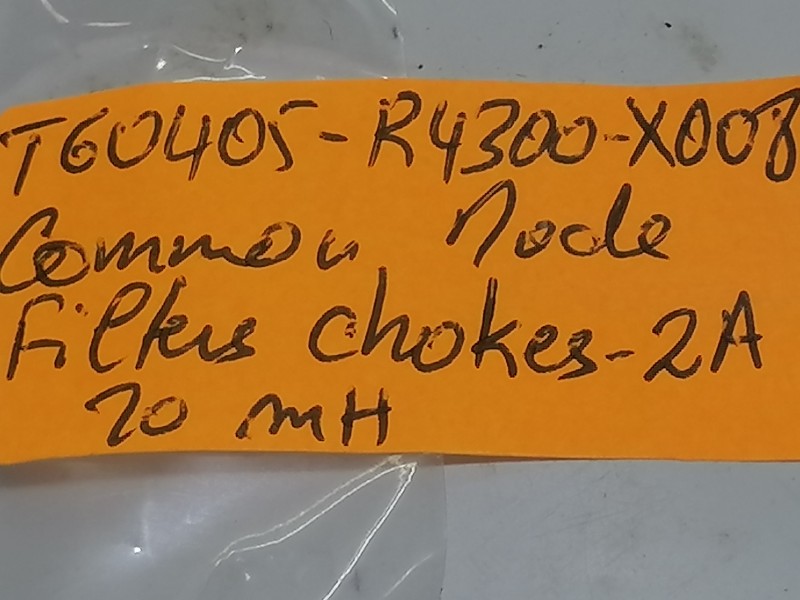 T60405-R4300-X008
Common Mode
Filters chokes-2A
20 mH